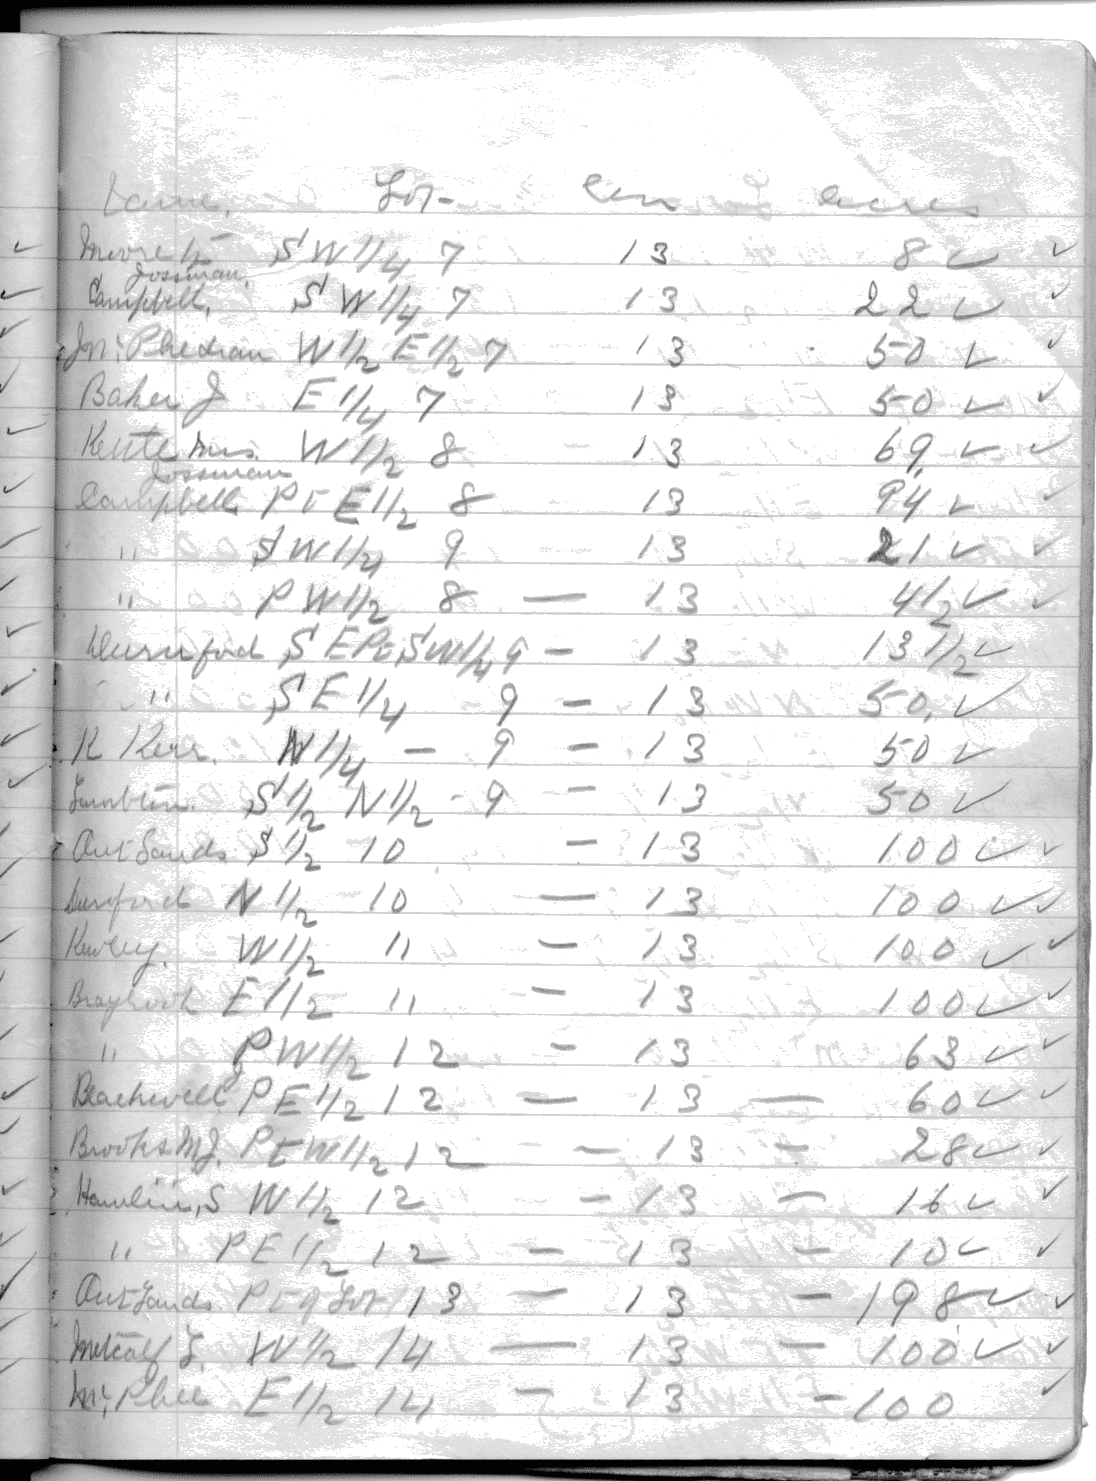 Name. Lot- Con acres
Moore S W 1/4 7 13 8 ✓ ✓
Jossman
Campbell, S W 1/4 7 13 22 ✓ ✓
Mc Phedran W 1/2 E 1/2 7 13 50 ✓ ✓
Baker J E 1/4 7 13 50 ✓ ✓
Keute Mrs. W 1/2 8 13 69 ✓ ✓
Jossman
Campbell Pt E 1/2 8 13 94 ✓ ✓
" S W 1/4 9 13 21 ✓ ✓
" P W 1/2 8 — 13 4 1/2 ✓ ✓
Durnford S E Pt S W 1/4 9 - 13 13 1/2 ✓
" S E 1/4 9 - 13 50, ✓
R Kerr. N 1/4 - 9 - 13 50 ✓
S 1/2 N 1/2 - 9 - 13 50 ✓
Out Lands S 1/2 10 - 13 100 ✓ ✓
Durnford N 1/2 10 — 13 100 ✓ ✓
Kewley. W 1/2 11 - 13 100 ✓ ✓
Braybrook E 1/2 11 - 13 100 ✓ ✓
" P W 1/2 12 - 13 63 ✓ ✓
Blackwell P E 1/2 12 — 13 — 60 ✓ ✓
Brooks M J. Pt W 1/2 12 - 13 - 28 ✓ ✓
Hamlin, S W 1/2 12 - 13 - 16 ✓ ✓
" P E 1/2 12 - 13 - 10 ✓ ✓
Out Lands Pt of Lot 13 - 13 - 198 ✓ ✓
Metcalf W 1/2 14 — 13 - 100 ✓ ✓
Mc Phee E 1/2 14 - 13 - 100 ✓